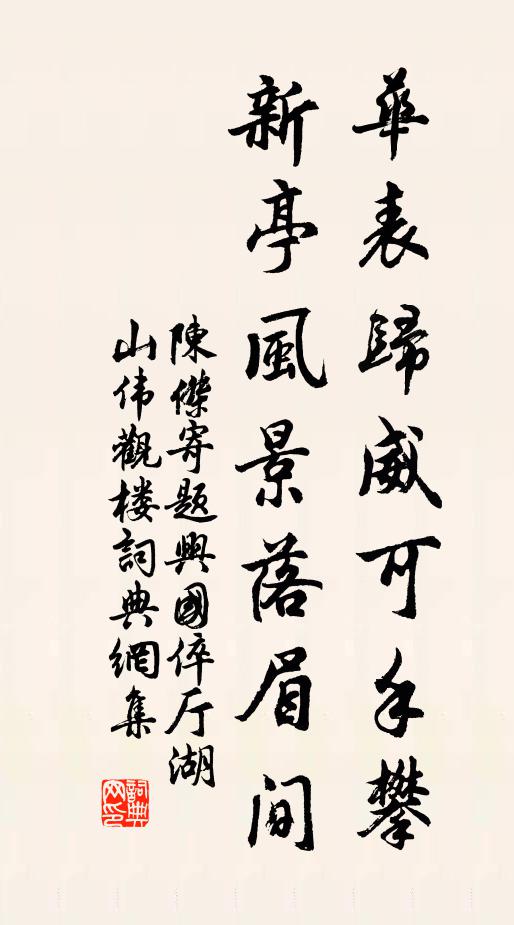 華表歸威可手攀
新亭風景落眉間
陳傑寄題興國倅厅湖
山伟觀楼詞典網集
詞典
网印